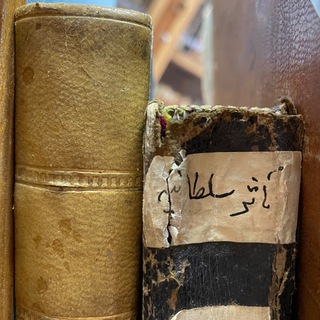 مآثر سلطانیه